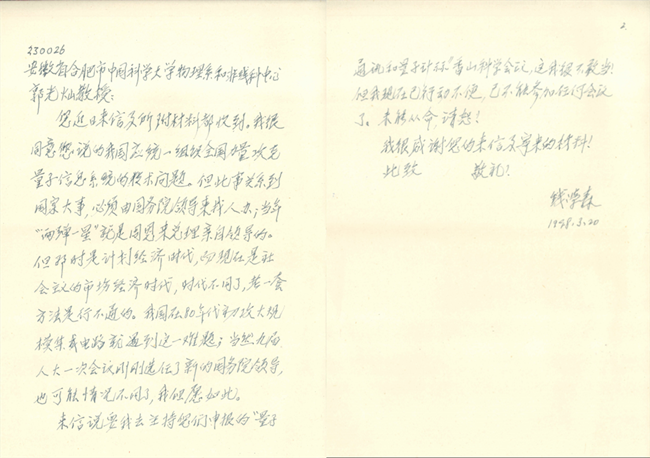 230026
安徽省合肥市中国科学大学物理系和非线科中心
郭光灿教授：
您近日来信及所附材料都收到。我很
同意您说的我国应统一组织全国力量攻克
量子信息系统的技术问题。但此事关系到
国家大事，必须由国务院领导来找人办；当年
“两弹一星”就是周恩来总理亲自领导的。
但那时是计划经济时代，而现在是社
会主义的市场经济时代，时代不同了，老一套
方法是行不通的。我国在80年代初攻大规
模集成电路就遇到这一难题；当然九届
人大一次会议刚刚选任了新的国务院领导，
也可能情况不同了，我但愿如此。
来信说要我去主持您们申报的“量子
2.
通讯和量子计算”香山科学会议，这我很不敢当！
但我现在已行动不便，已不能参加任何会议
了。未能从命，请恕！
我很感谢您的来信及寄来的材料！
此致 敬礼！
钱学森
1998.3.20